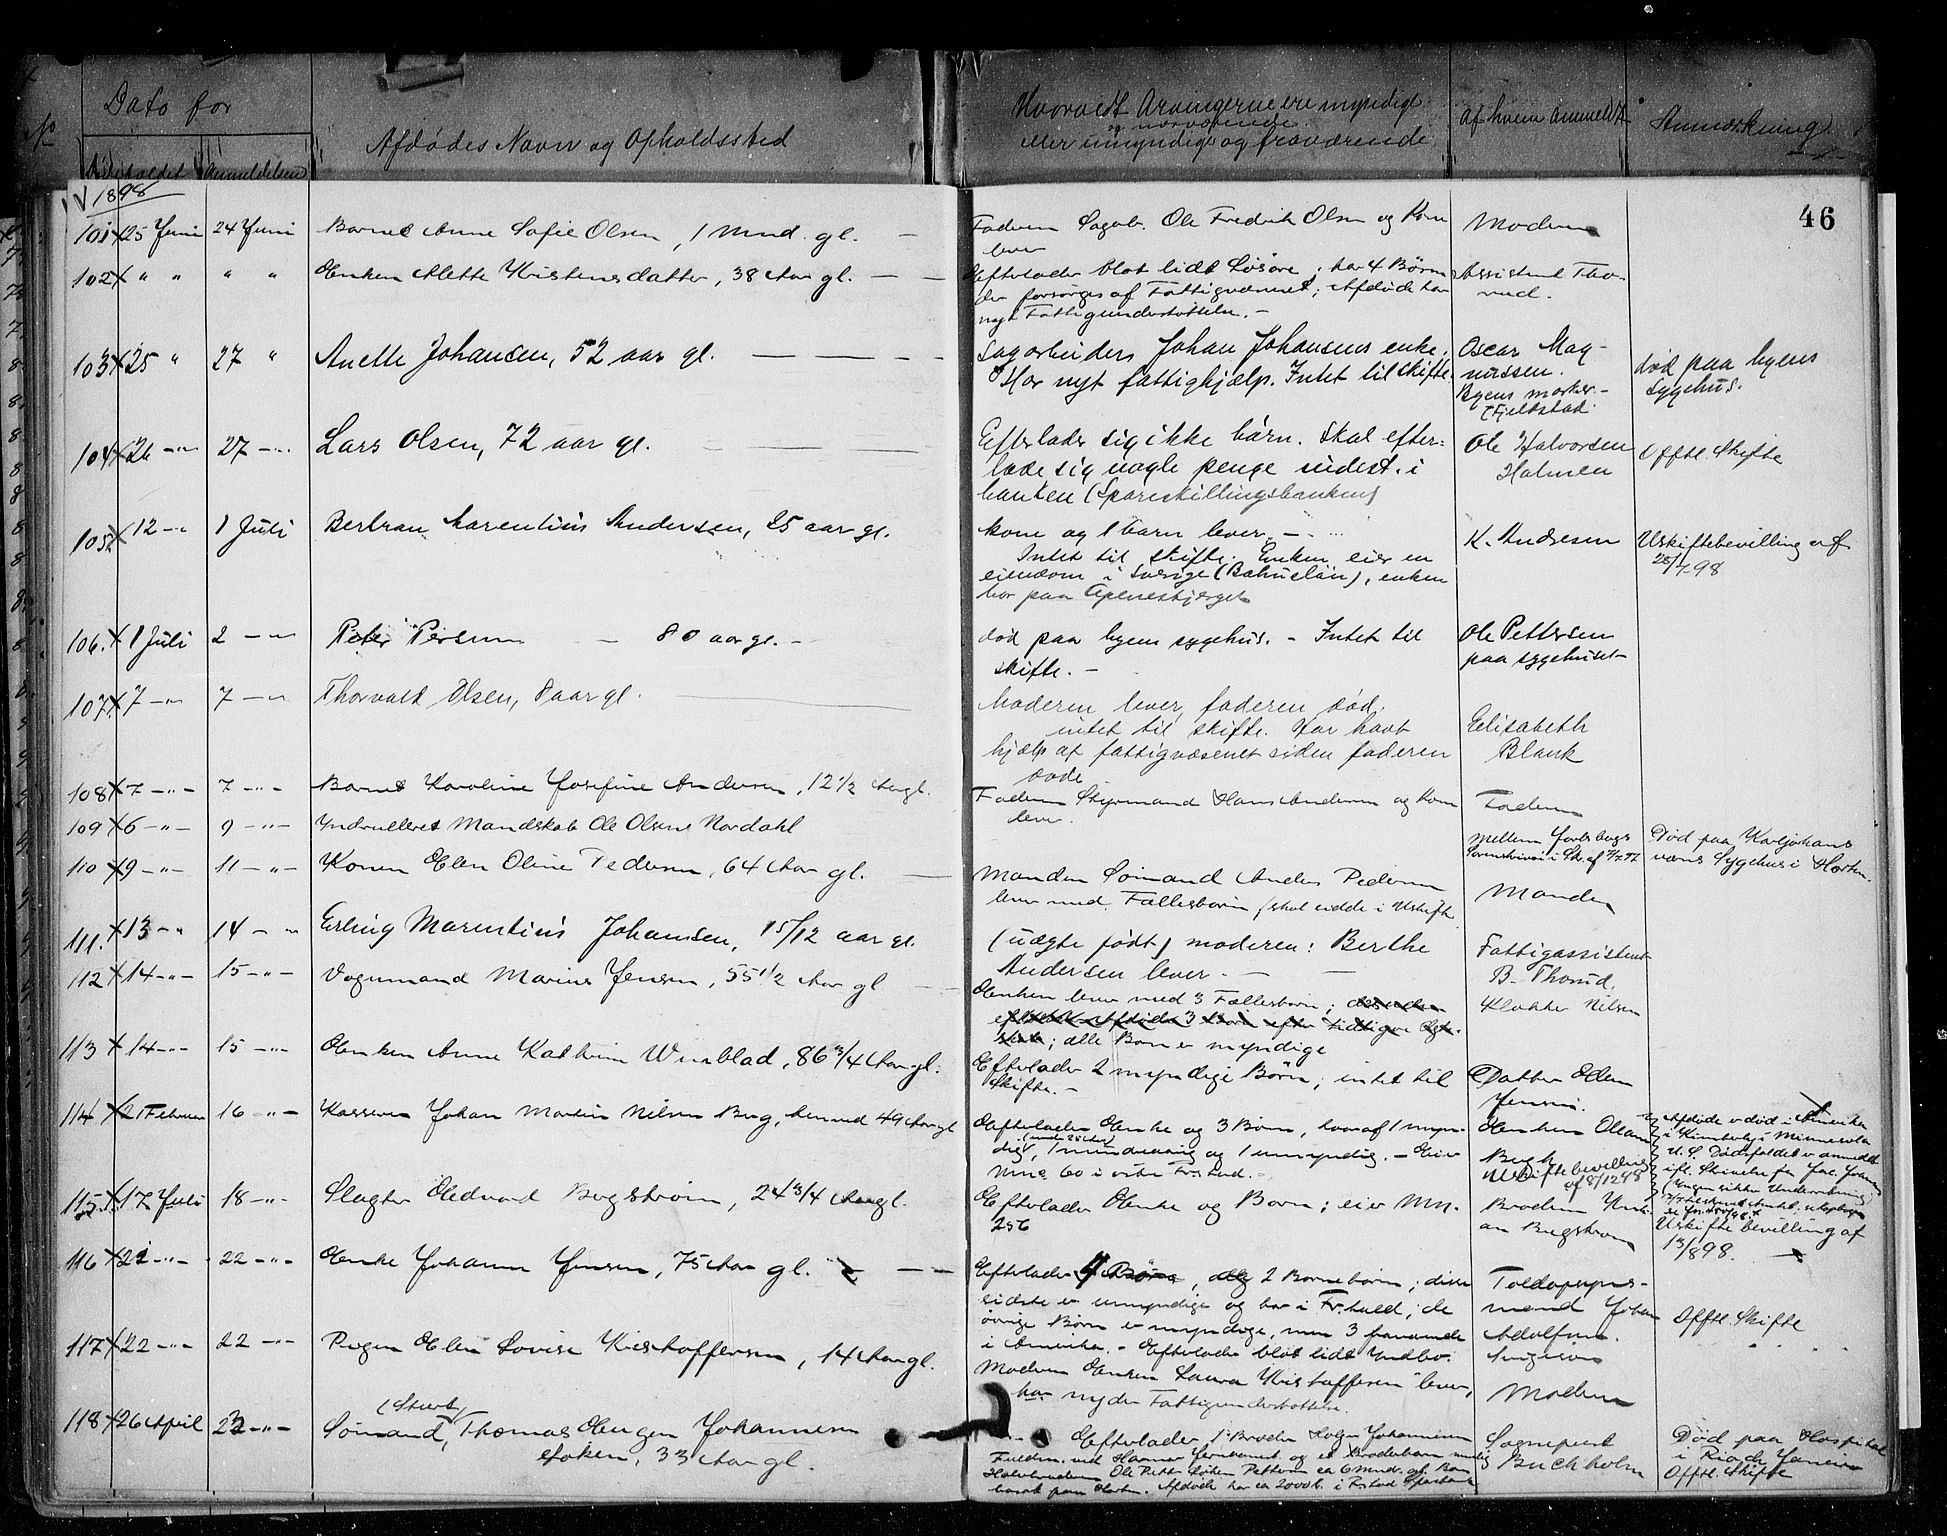 No
Dato for
Dødsfaldet
Anmeldelsen
Afdødes Navn og Opholdssted
Hvorvidt Arvingerne ere myndige
og nærværende
eller umyndige og fraværende
af hvem anmeldt
Anmærkning
46
1898
101 25 Juni 24 Juni Barnet Anne Sofie Olsen, 1 Mnd. gl. —
Faderen Sagarb. Ole Fredrik Olsen og Kone
lever
Moderen
102 " " " " Enken Alette Kristensdatter, 38 Aar gl. — —
Efterlader blot lidt Løsøre; har 4 Børn
der forsørges af Fattigvæsenet; Afdøde har
nydt Fattigunderstøttelse. —
Assistent Tho-
rud.
103 25 " 27 " Anette Johansen, 52 aar gl. — — — —
Sagarbeiders Johan Johansens enke.
Har nyt fattighjælp. Intet til skifte.
Oscar Mag-
nussen.
Byens marker -
Fjeldstad.
død paa byens
sygehus.
104 26 -"- 27 -"- Lars Olsen, 72 aar gl. —
Efterlader sig ikke børn. Skal efter-
lade sig nogle penge indest. i
banken (Spareskillingsbanken)
Ole Halvorsen
Holmen
Offtl. Skifte
105 12 -"- 1 Juli Bertran Laurentius Andersen, 25 aar gl.
kone og 1 barn lever. —
Intet til skifte. Enken eier en
eiendom i Sverige (Bahuslän), enken
bor paa Apenesbjerget
K. Andresen
Uskiftebevilling af
25/7-98
106. 1 Juli 2 -"- Peter Persen — 80 aar gl. —
død paa byens sygehus. - Intet til
skifte. —
Ole Pettersen
paa sygehuset
107. 7 -"- 7 -"- Thorvald Olsen, 8 aar gl. —
Moderen lever, faderen død.
intet til skifte. Har havt
hjælp af fattigvæsenet siden faderen
døde
Elisabeth
Blank
108 7 -"- 7 -"- Barnet Karoline Josefine Andersen, 12 1/2 Aar gl.
Faderen Styrmand Hans Andersen og Kone
lever.
Faderen
109 6 -"- 9 -"- Indrulleret Mandskab Ole Olsen Nordahl
Mellem Jarlsbergs
Sorenskriveri
Død paa Karljohans
værns Sygehus i Horten.
110 9 -"- 11 -"- Konen Elen Oline Pedersen, 64 Aar gl. —
Manden Sømand Anders Pedersen
lever med Fællesbørn, skal sidde i Uskifte
Manden
111. 13 -"- 14 -"- Erling Marentius Johansen, 15/12 aar gl.
(uægte født) moderen: Berthe
Andersen lever. — —
Fattigassistent
B. Thorud.
112 14 -"- 15 -"- Vognmand Marius Jensen, 55 1/2 Aar gl — —
Enken lever med 3 Fællesbørn;
alle Børn er myndige
Klokker Nilsen
113 14 -"- 15 -"- Enken Anne Kathrine Winblad, 86 3/4 Aar gl.
Efterlader 2 myndige Børn; intet til
Skifte. —
Datter Elen
Jensen.
114 21 Februar 16 -"- Kasserer Johan Martin Nilsen Bug, 49 Aar gl
Efterlader Enke og 3 Børn, hvoraf 1 myn-
dig, 1 mindreaarig og 1 umyndig. — Eier
Mn. 60 i
Enken
Bugh
Uskiftebevilling
af 8/12 98
Afdøde er død i Amerika
i Kimberly i Minnesota
U. S. Dødsfaldet er anmeldt
115. 17 Juli 18 -"- Slagter Edvard Bergstrøm, 24 3/4 Aar gl.
Efterlader Enke og Barn; eier Mn.
256
Broderen
Bergstrøm
Uskiftebevilling af
13/8 98.
116 21 -"- 22 -"- Enke Johanne Jensen, 75 Aar gl. — —
Efterlader 4 Børn, 2 Børnebørn; disse
sidste er umyndige og bor i Fr.hald; de
øvrige Børn er myndige, men 3 fraværende
i Amerika. - Efterlader blot lidt Indbo.
Toldopsyns-
mand Johan
Adolfsen.
Offtl. Skifte
117 22 -"- 22 -"- Pigen Elen Lovise Kristoffersen, 14 Aar gl.
Moderen Enken Laura Kristoffersen lever,
har nyder Fattigunderstøttelse.
Moderen
118 26 April 23 -"- (Stuert)
Sømand, Thomas Jørgen Johannesen
Løken, 33 Aar gl.
Efterlader 1 Broder Johannesen
Afdøde har ca 2000 k. i F.stad Sparebank
Sogneprest
Buchholm
Død paa Hospital
i Rio de Janeiro
Offtl. Skifte